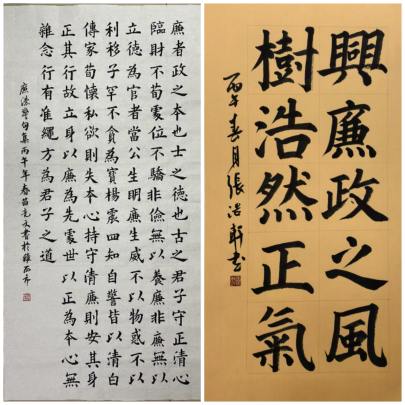 廉者政之本也士之德也古之君子守正清心
臨財不苟處位不驕非儉無以養廉非廉無以
立德為官者當公生明廉生威不以物惑不以
利移子罕不貪為寶楊震四知自警皆以清白
傳家苟懷私欲則失本心持守清廉則安其身
正其行故立身以廉為先處世以正為本心無
雜念行有準繩方為君子之道
廉潔警句集丙午年春
興廉政之風
樹浩然正氣
丙午春月張浩軒書